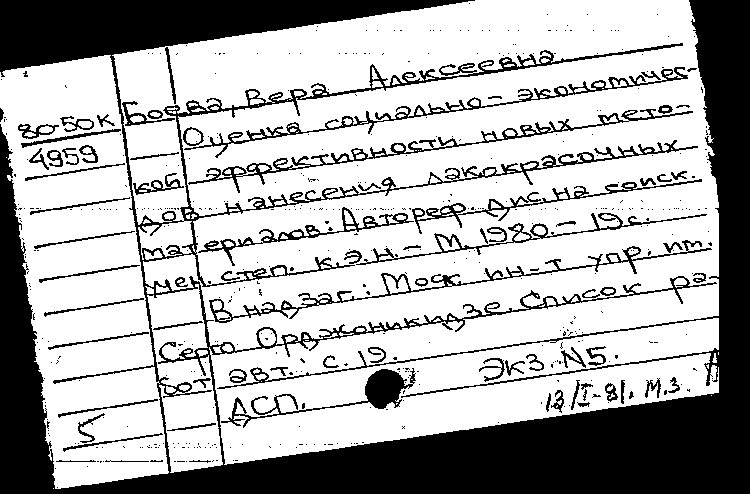 80-50К Боева, Вера Алексеевна.
4959 Оценка социально-экономичес-
кой эффективности новых мето-
дов нанесения лакокрасочных
материалов: Автореф. дис. на соиск.
учен. степ. к.э.н. - М., 1980. - 19 с.
В надзаг.: Моск. ин-т упр. им.
Серго Орджоникидзе. Список ра-
бот авт.: с. 19.
ДСП. Экз. N5.
5 13/I-81. М.З.